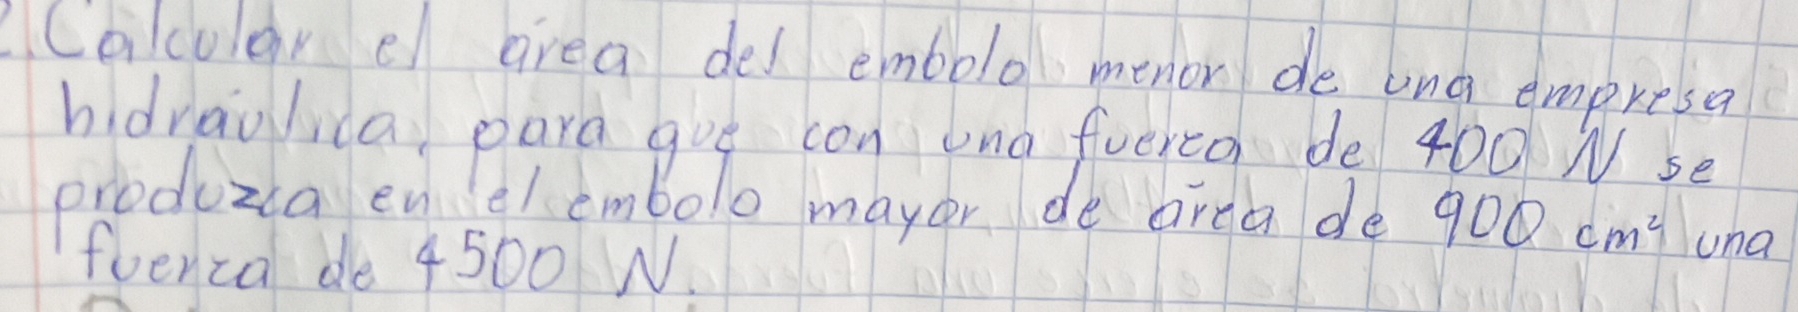 2. Calcular el área del embolo menor de una empresa
hidraúlica, para que con una fuerza de 400 N se
produzca en el embolo mayor de área de 900 cm² una
fuerza de 4500 N.